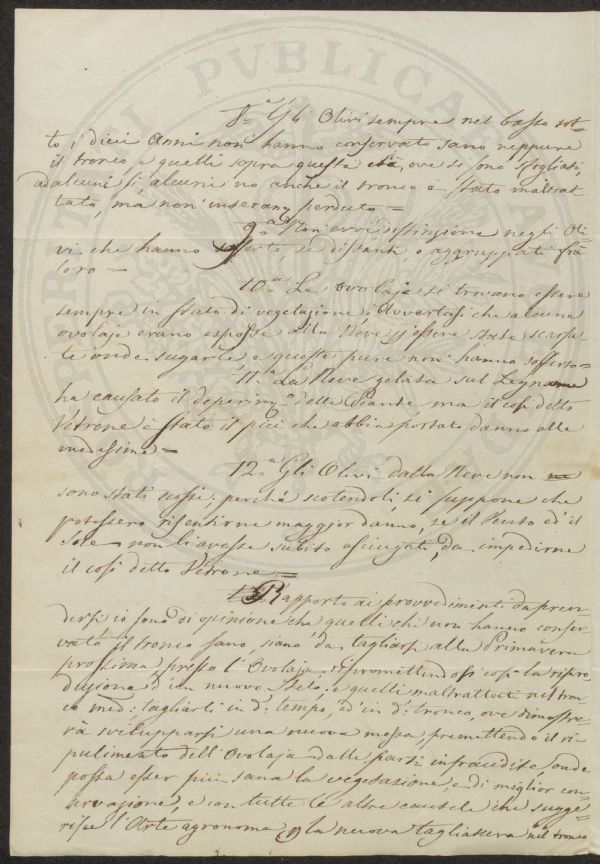 8.ª Gli Olivi sempre nel basso sot=
to i dieci Anni non hanno conservato sano neppure
il tronco e quelli sopra questa età, ove si sono sfogliati,
ad alcuni si, alcuni no anche il tronco è stato maltrat
tato, ma non perduto=
9.ª Non evvi distinzione negli Oli=
vi che hanno sofferto, se distanti o aggruppati frà
loro=
10.ª Le ovolaje si trovano essere
sempre in stato di vegetazione; Avvertasi che alcune
ovolaje erano esposte alla Neve essere state scassa=
te onde sugarle e queste pure non hanno sofferto=
11.ª La Neve gelata sul Legname
ha causato il deperim.º delle Piante ma il così detto
Vetrone è stato il più che abbia portato danno alle
medesime=
12.ª Gli Olivi dalla Neve non
sono stati scossi; perchè scotendoli, si suppone che
potessero risentirne maggior danno, se il Vento ed il
Sole non li avesse subito asciugati, da impedirne
il così detto Vetrone=
Rapporto ai provvedimenti da pren=
dersi io sono di opinione che quelli chi non hanno conser=
vato il tronco sano, siano da tagliarsi alla Primavera
prossima presso l'Ovolaja ripromettendosi così la ripro=
duzione d'un nuovo Stelo, e quelli maltrattati nel tron=
co med: tagliarli in d: tempo, ed in d: tronco, ove dimostre=
rà svilupparsi una nuova messa, premettendo il ri=
pulimento dell'Ovolaja dalle parti infracidite onde
possa esser più sana la vegetazione e di miglior con=
servazione, e con tutte le altre cautele che sugge=
risce l'Arte agronoma la nuova tagliatura nel tronco